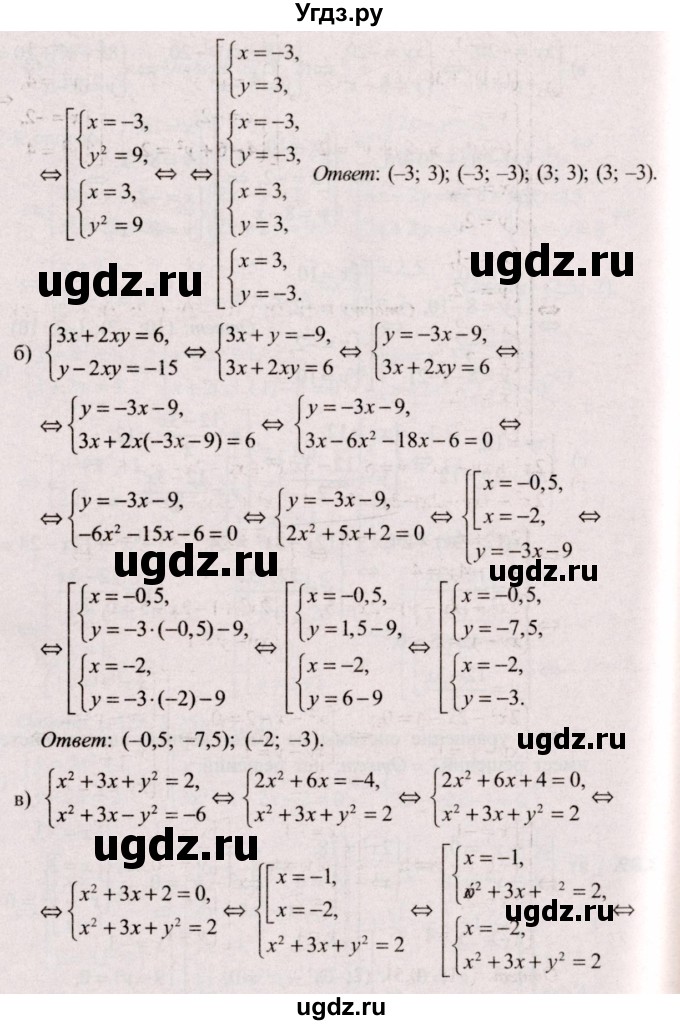 Угдз.ру
x = −3,
y = 3,
⇔ x = −3, y² = 9, ⇔ ⇔ x = −3, y = −3, Ответ: (−3; 3); (−3; −3); (3; 3); (3; −3).
x = 3, y² = 9 x = 3, y = 3,
x = 3,
y = −3.
ugdz.ru ugdz.ru
б) { 3x + 2xy = 6, y − 2xy = −15 ⇔ { 3x + y = −9, 3x + 2xy = 6 ⇔ { y = −3x − 9, 3x + 2xy = 6 ⇔
⇔ { y = −3x − 9, 3x + 2x(−3x − 9) = 6 ⇔ { y = −3x − 9, 3x − 6x² − 18x − 6 = 0 ⇔
⇔ { y = −3x − 9, −6x² − 15x − 6 = 0 ⇔ { y = −3x − 9, 2x² + 5x + 2 = 0 ⇔ { [ x = −0,5, x = −2, y = −3x − 9 ⇔
ugdz.ru ugdz.ru
⇔ [ { x = −0,5, y = −3·(−0,5) − 9, { x = −2, y = −3·(−2) − 9 ⇔ [ { x = −0,5, y = 1,5 − 9, { x = −2, y = 6 − 9 ⇔ [ { x = −0,5, y = −7,5, { x = −2, y = −3.
Ответ: (−0,5; −7,5); (−2; −3).
в) { x² + 3x + y² = 2, x² + 3x − y² = −6 ⇔ { 2x² + 6x = −4, x² + 3x + y² = 2 ⇔ { 2x² + 6x + 4 = 0, x² + 3x + y² = 2 ⇔
ugdz.ru
⇔ { x² + 3x + 2 = 0, x² + 3x + y² = 2 ⇔ { [ x = −1, x = −2, x² + 3x + y² = 2 ⇔ [ { x = −1, ² + 3x + ² = 2, { x = −2, x² + 3x + y² = 2 ⇔
ugdz.ru
ugdz.ru